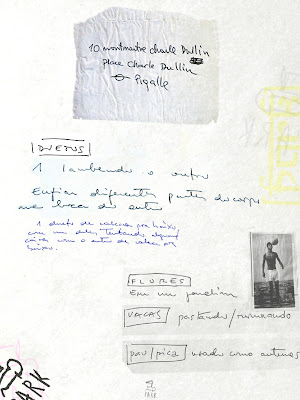 10 montmaitre Charle Dullin
place Charle Dullin
Pigalle
DUETOS
1 lambendo o outro
Enfiar diferentes partes do corpo
na boca do outro
1 dueto de cabeça pra baixo,
com um deles tentando
com o outro de cabeça pra
baixo.
FLORES
Em um jardim
VACAS pastando/ruminando
pau/pica usado como antenas
PARK